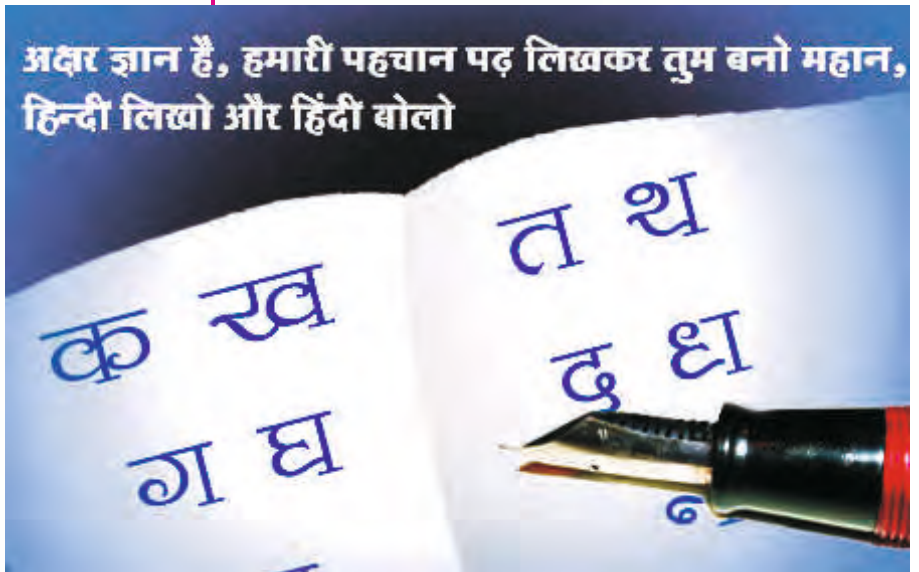 अक्षर ज्ञान है, हमारी पहचान पढ़ लिखकर तुम बनो महान,
हिन्दी लिखो और हिंदी बोलो
क ख
ग घ
त थ
द ध